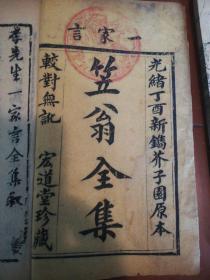 一家言
光緒丁酉新鐫芥子園原本
笠翁全集
較對無訛
宏道堂珍藏
李先生一家言全集叙